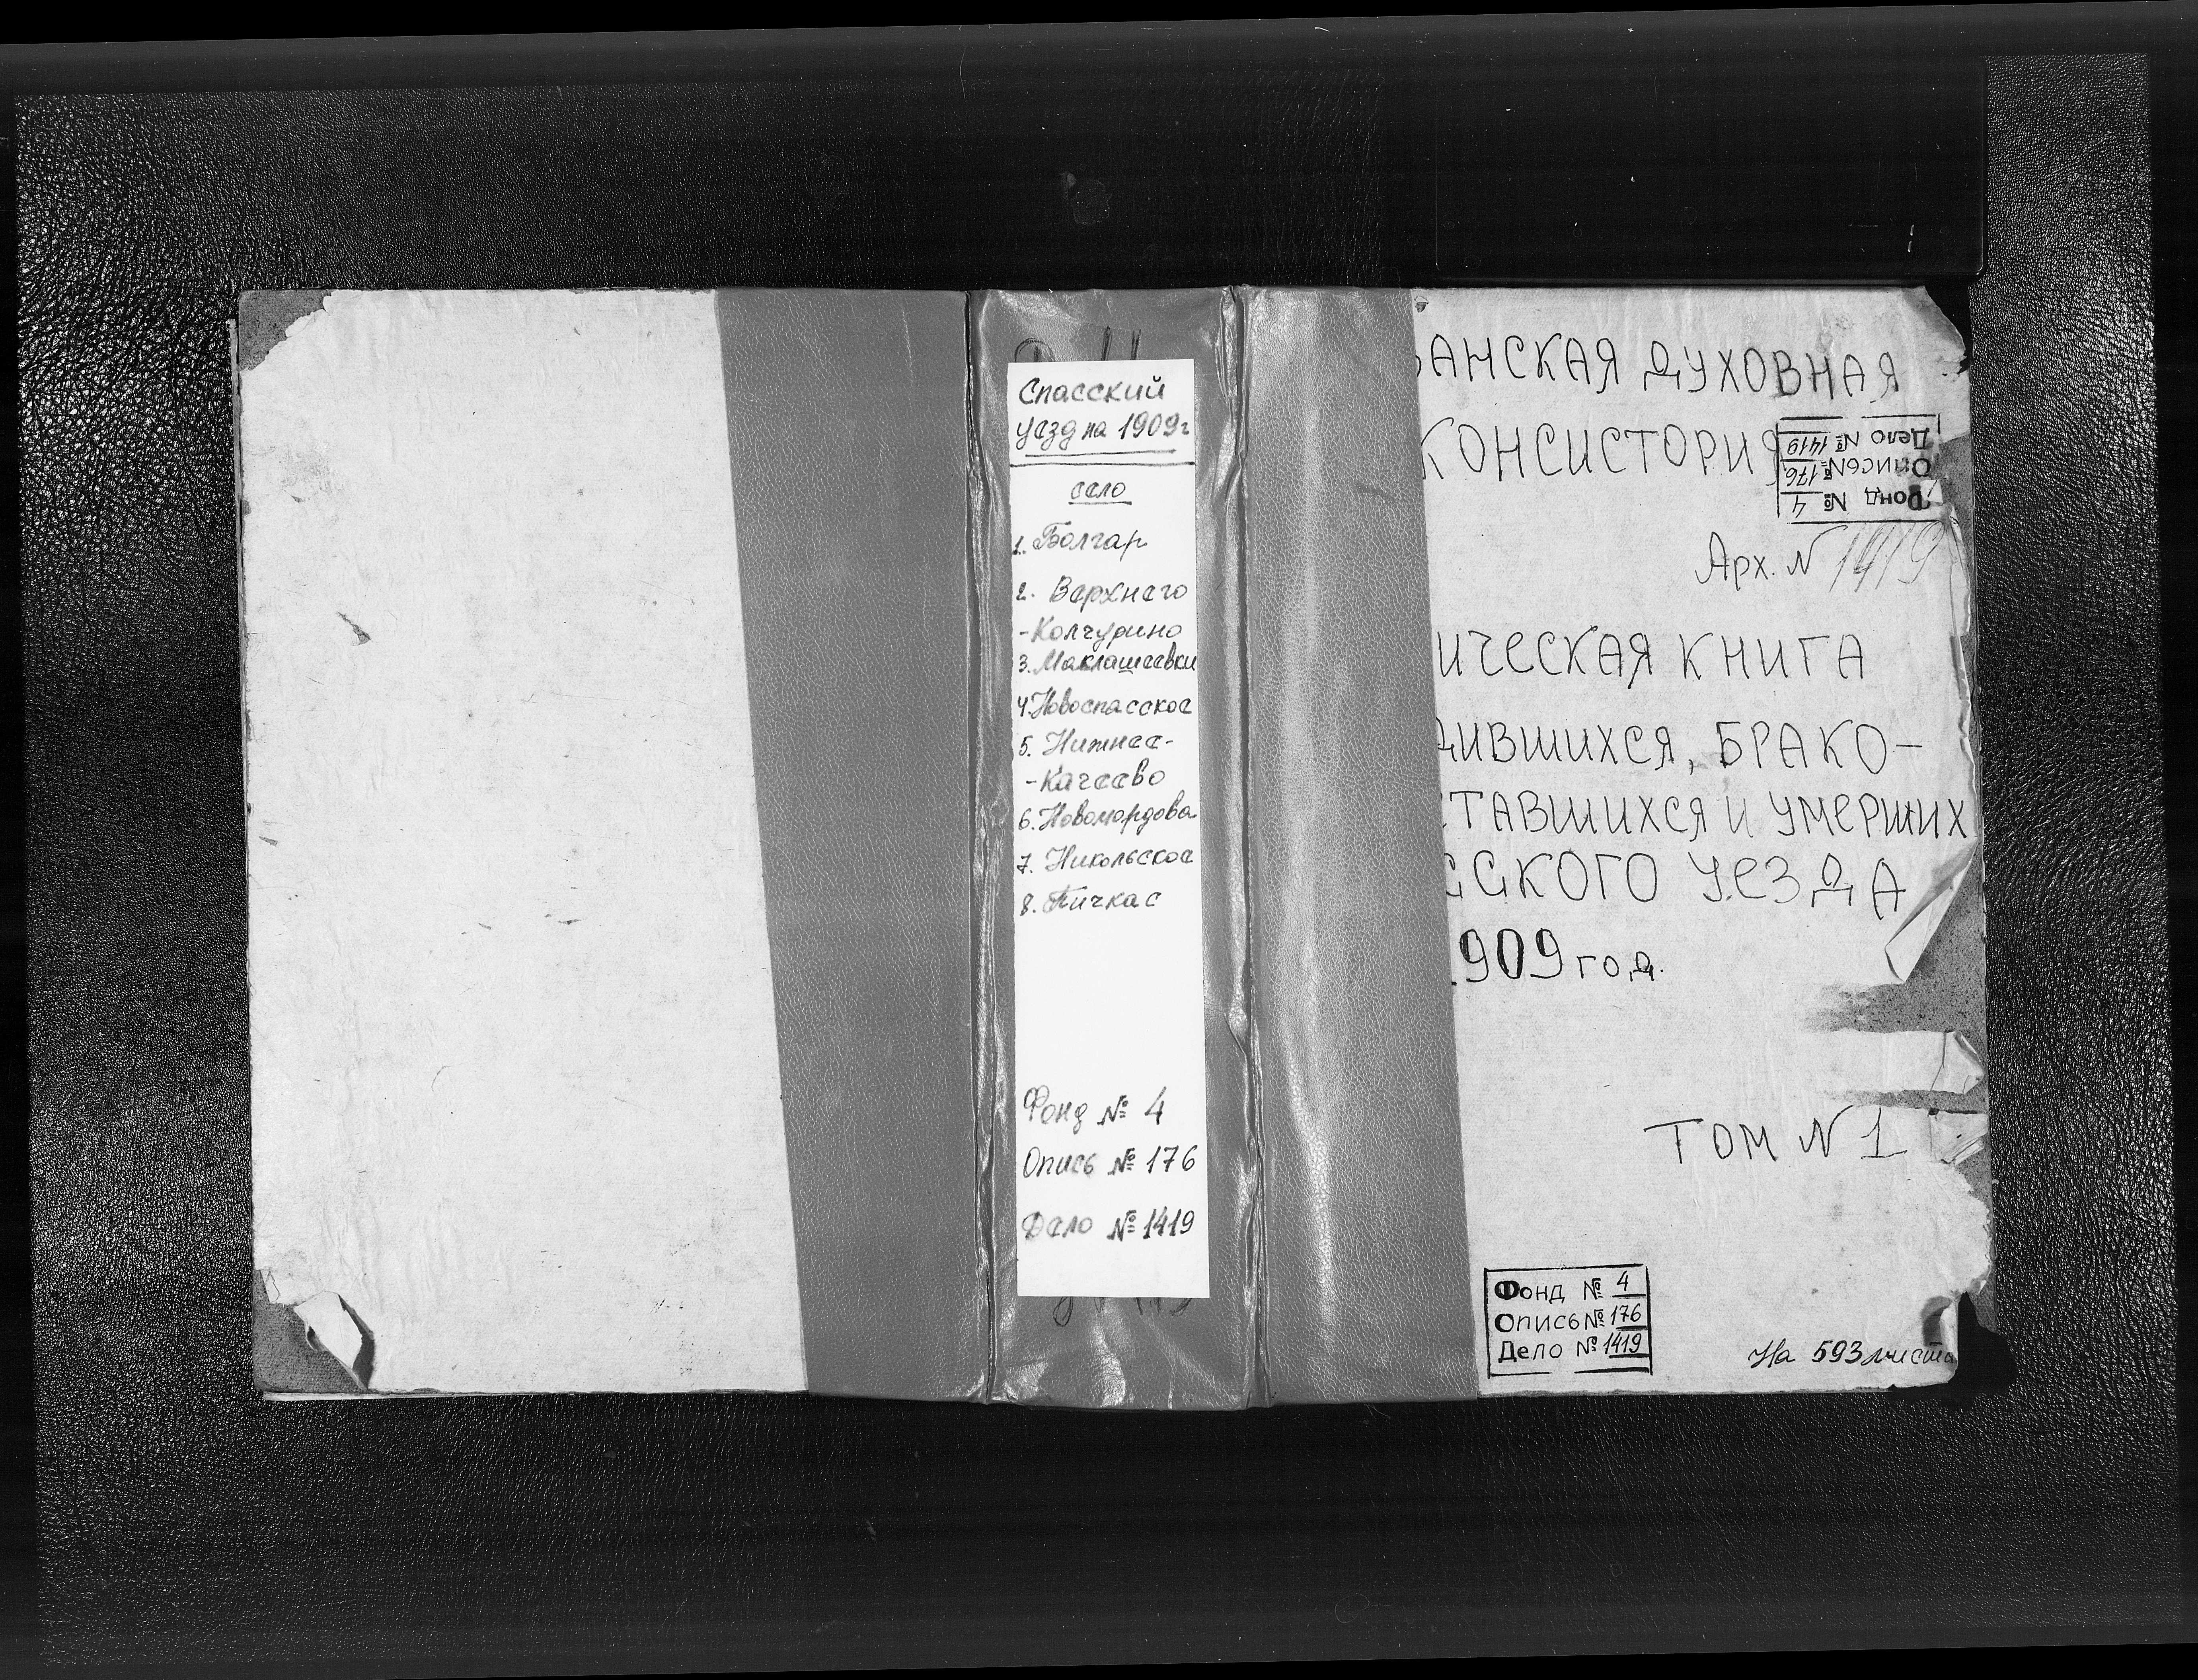 Спасский
уезд на 1909г
село
1. Болгар
2. Верхнего
-Колчурино
3. Маклашеевки
4. Новоспасское
5. Нижнее-
-Качеево
6. Новомордова
7. Никольское
8. Пичкас
Фонд № 4
Опись № 176
Дело № 1419
ЗАНСКАЯ ДУХОВНАЯ
КОНСИСТОРИЯ
Фонд № 4
Опись № 176
Дело № 1419
Арх. N 1419
ИЧЕСКАЯ КНИГА
ДИВШИХСЯ, БРАКО-
ЕТАВШИХСЯ И УМЕРШИХ
ССКОГО УЕЗДА
1909 год.
ТОМ N 1
Фонд № 4
Опись № 176
Дело № 1419
На 593 листа